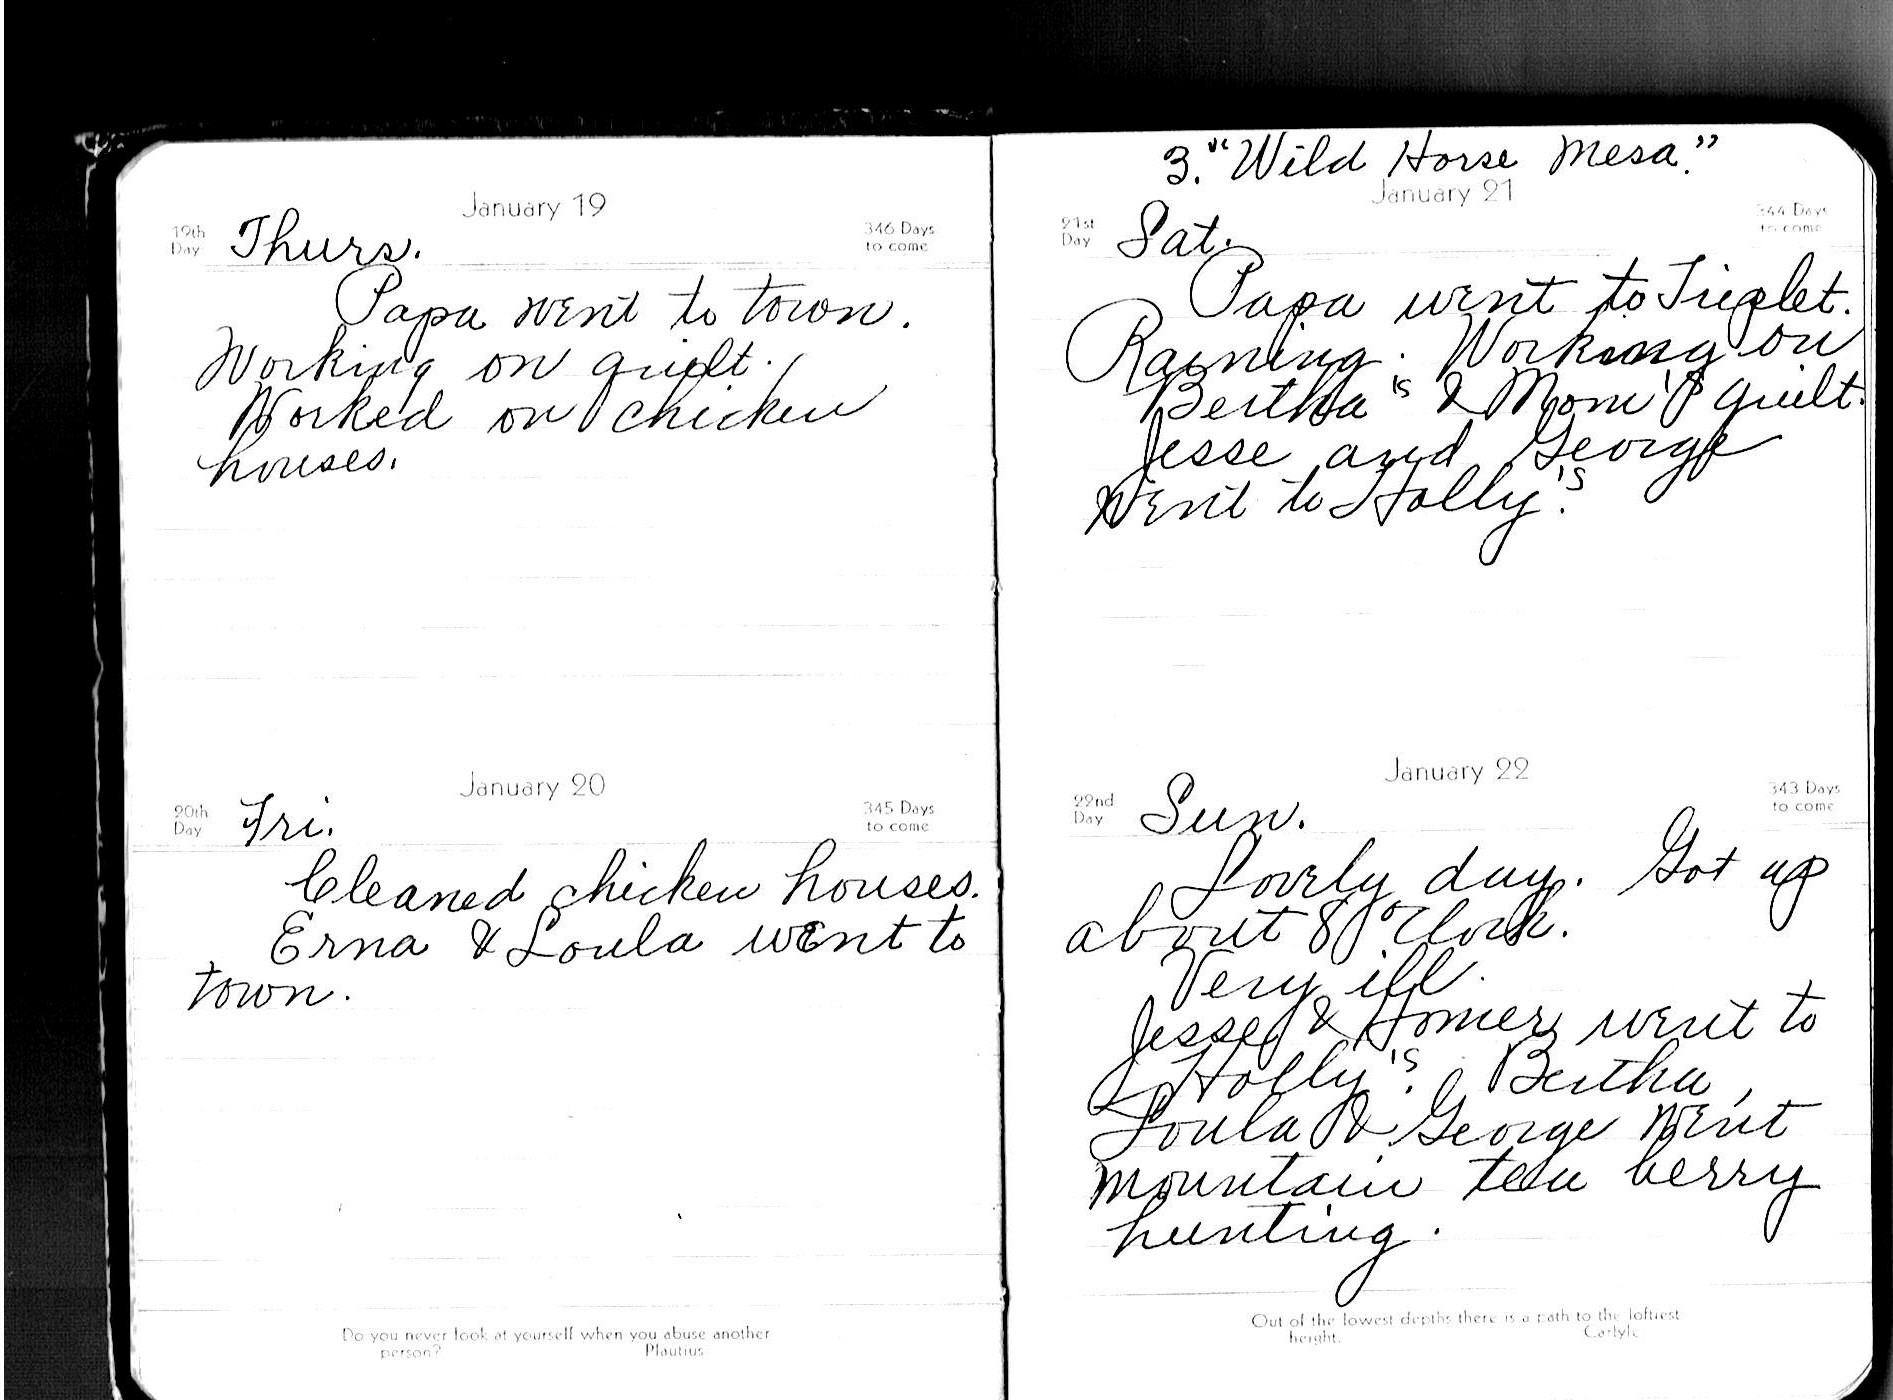 January 19
19th
Day
Thurs.
346 Days
to come
Papa went to town.
Working on quilt.
Worked on chicken
houses.
January 20
20th
Day
Fri.
345 Days
to come
Cleaned chicken houses.
Erna & Loula went to
town.
Do you never look at yourself when you abuse another
person?
Plautius
3. "Wild Horse Mesa."
January 21
21st
Day
Sat.
344 Days
to come
Papa went to Triplet.
Raining. Working on
Bertha's & Mom's quilt.
Jesse and George
went to Holly's.
January 22
22nd
Day
Sun.
343 Days
to come
Lovely day. Got up
about 8 o'clock.
Very ill.
Jesse & Homer went to
Holly's. Bertha,
Loula & George went
mountain tea berry
hunting.
Out of the lowest depths there is a path to the loftiest
height.
Carlyle